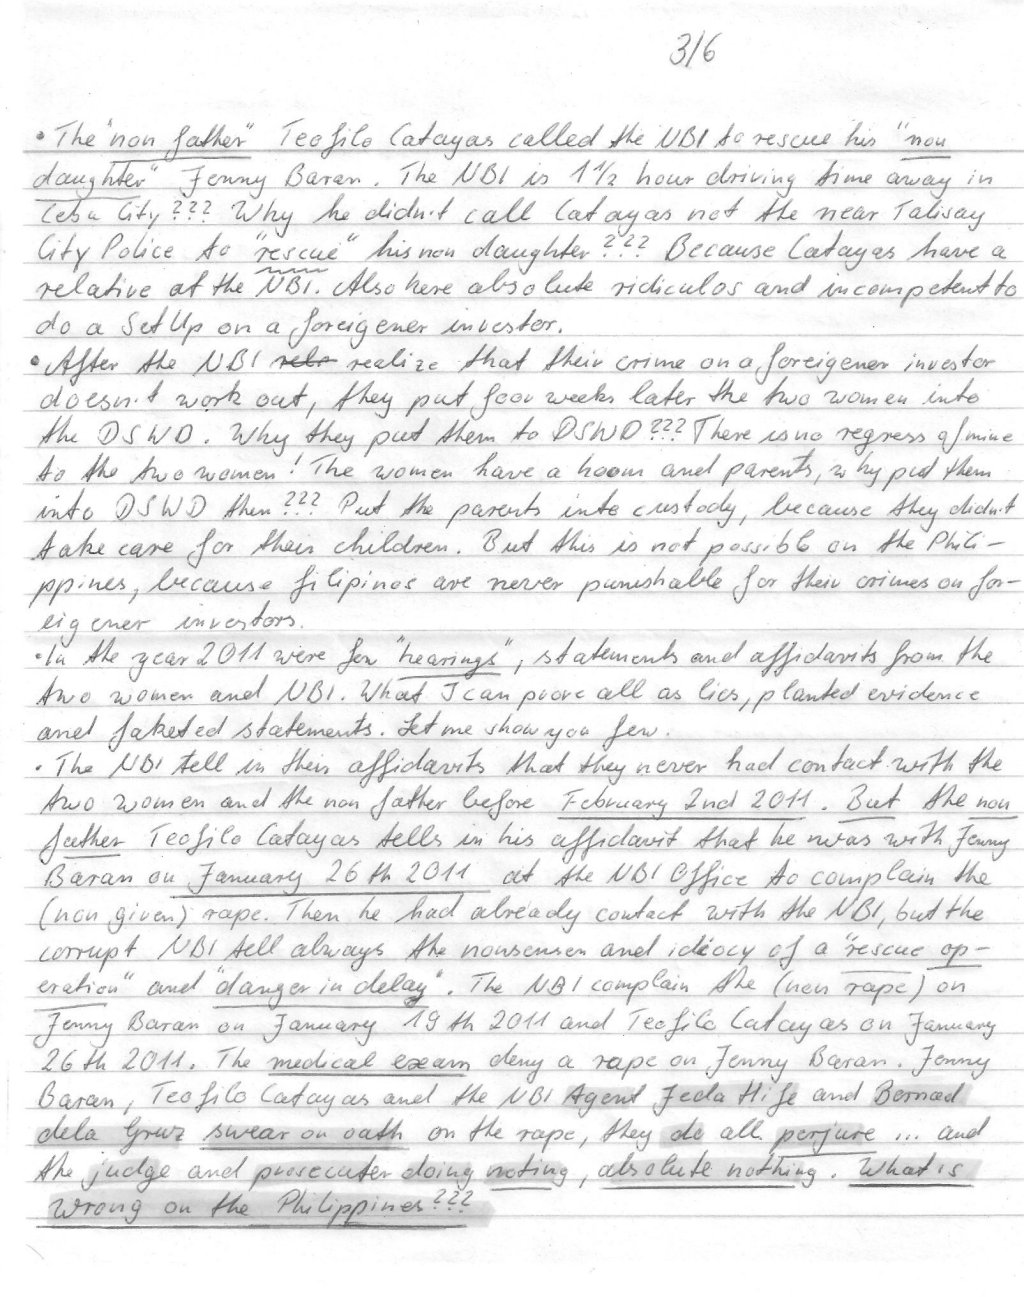 3/6
• The "non father" Teofilo Catayas called the NBI to rescue his "non
daughter" Jenny Baran. The NBI is 1 1/2 hour driving time away in
Cebu City??? Why he didn't call Catayas not the near Talisay
City Police to "rescue" his non daughter??? Because Catayas have a
relative at the NBI. Also here absolute ridiculos and incompetent to
do a Set Up on a foreigener investor.
• After the NBI relr realize that their crime on a foreigener investor
doesn't work out, they put foor weeks later the two women into
the DSWD. Why they put them to DSWD??? There is no regress of mine
to the two women! The women have a hoom and parents, why put them
into DSWD then??? Put the parents into custody, because they didn't
take care for their children. But this is not possible on the Phili-
ppines, because filipinos are never punishable for their crimes on for-
eigener investors.
• In the year 2011 were few "hearings", statements and affidavits from the
two women and NBI. What I can prove all as lies, planted evidence
and faketed statements. Let me show you few.
• The NBI tell in their affidavits that they never had contact with the
two women and the non father before February 2nd 2011. But the non
father Teofilo Catayas tells in his affidavit that he was with Jenny
Baran on January 26th 2011 at the NBI Office to complain the
(non given) rape. Then he had already contact with the NBI, but the
corrupt NBI tell always the nonsensen and idiocy of a "rescue op-
eration" and "danger in delay". The NBI complain the (non rape) on
Jenny Baran on January 19th 2011 and Teofilo Catayas on January
26th 2011. The medical exam deny a rape on Jenny Baran. Jenny
Baran, Teofilo Catayas and the NBI Agent Jeda Hife and Bernad
dela Gruz swear on oath on the rape, they do all perjure ... and
the judge and prosecuter doing noting, absolute nothing. What is
wrong on the Philippines???